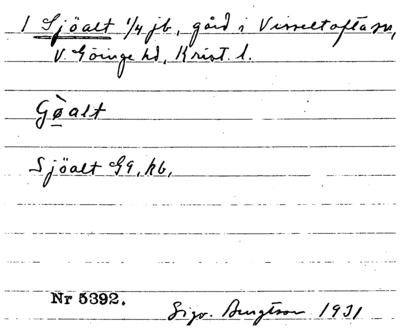 1 Sjöalt 1/4 jb, gård i Visseltofta sn,
V. Göinge hd, Krist. l.
Gö̀alt
Sjöalt GA, kb,
Nr 5392.
Sigv. Bengtson 1931